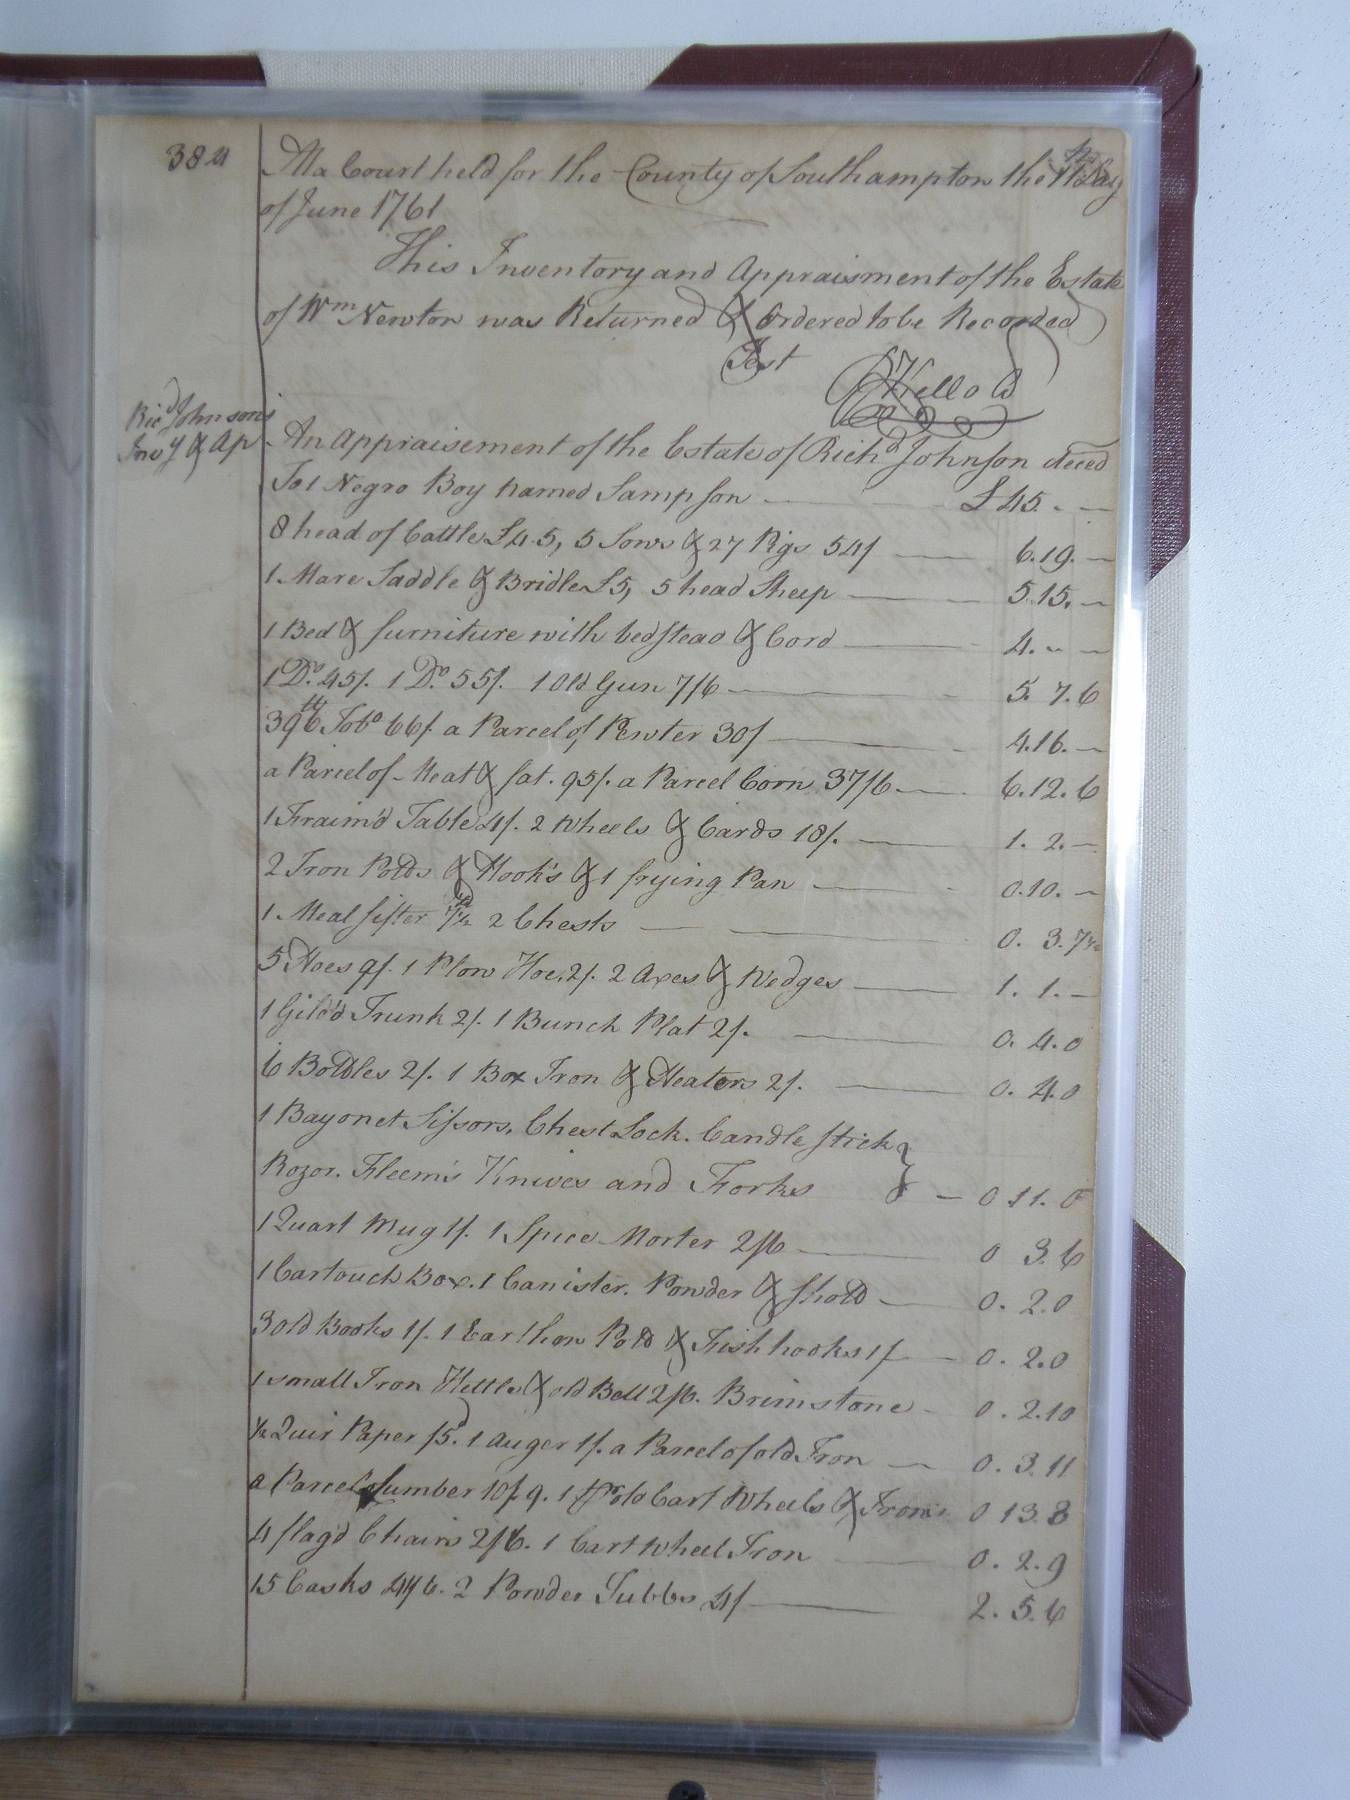 384
At a Court held for the County of Southampton the 11th Day
of June 1761
This Inventory and Appraisment of the Estate
of Wm Newton was Returned & Ordered to be Recorded
Test
Kello Cl
Richd Johnson's
Invy & Ap
An Appraisement of the Estate of Richd Johnson deced
To 1 Negro Boy named Sampson £ 45. - -
8 head of Cattle £4.5, 5 Sows & 27 Pigs 54/ 6.19. -
1 Mare Saddle & Bridle £5, 5 head Sheep 5.15. -
1 Bed & furniture with bedstead & Cord 4. - -
1 Do. 45/. 1 Do. 55/. 1 Old Gun 7/6 5. 7. 6
396 lb Tobo 66/. a Parcel of Pewter 30/ 4.16. -
a Parcel of Meat & fat. 95/. a Parcel Corn 37/6 6.12. 6
1 Fraim'd Table 4/. 2 Wheels & Cards 18/. 1. 2. -
2 Iron Potts & Hook's & 1 frying Pan 0.10. -
1 Meal sifter 7d½ 2 Chests 0. 3. 7½
5 Hoes 9/. 1 Plow Hoe, 2/. 2 Axes & Wedges 1. 1. -
1 Gild'd Trunk 2/. 1 Bunch Plat 2/. 0. 4. 0
6 Bottles 2/. 1 Box Iron & Heaters 2/. 0. 4. 0
1 Bayonet Sissors. Chest Lock. Candle stick
Rozor. Fleem's Knives and Forks 0 11. 0
1 Quart Mug 1/. 1 Spice Morter 2/6 0 3. 6
1 Cartouch Box. 1 Canister. Powder & shott 0. 2. 0
3 old Books 1/. 1 Earthen Pott & Fish hooks 1/ 0. 2. 0
1 small Iron Kettle & old Bell 2/6. Brimstone 0. 2. 10
½ Quir Paper /5d. 1 Auger 1/. a Parcel of old Iron 0. 3. 11
a Parcel Lumber 10/9. 1 pr old Cart Wheels & Irons 0 13. 8
4 flag'd Chairs 2/6. 1 Cart Wheel Iron 0. 2. 9
15 Casks 41/6. 2 Powder Tubbs 4/ 2. 5. 6